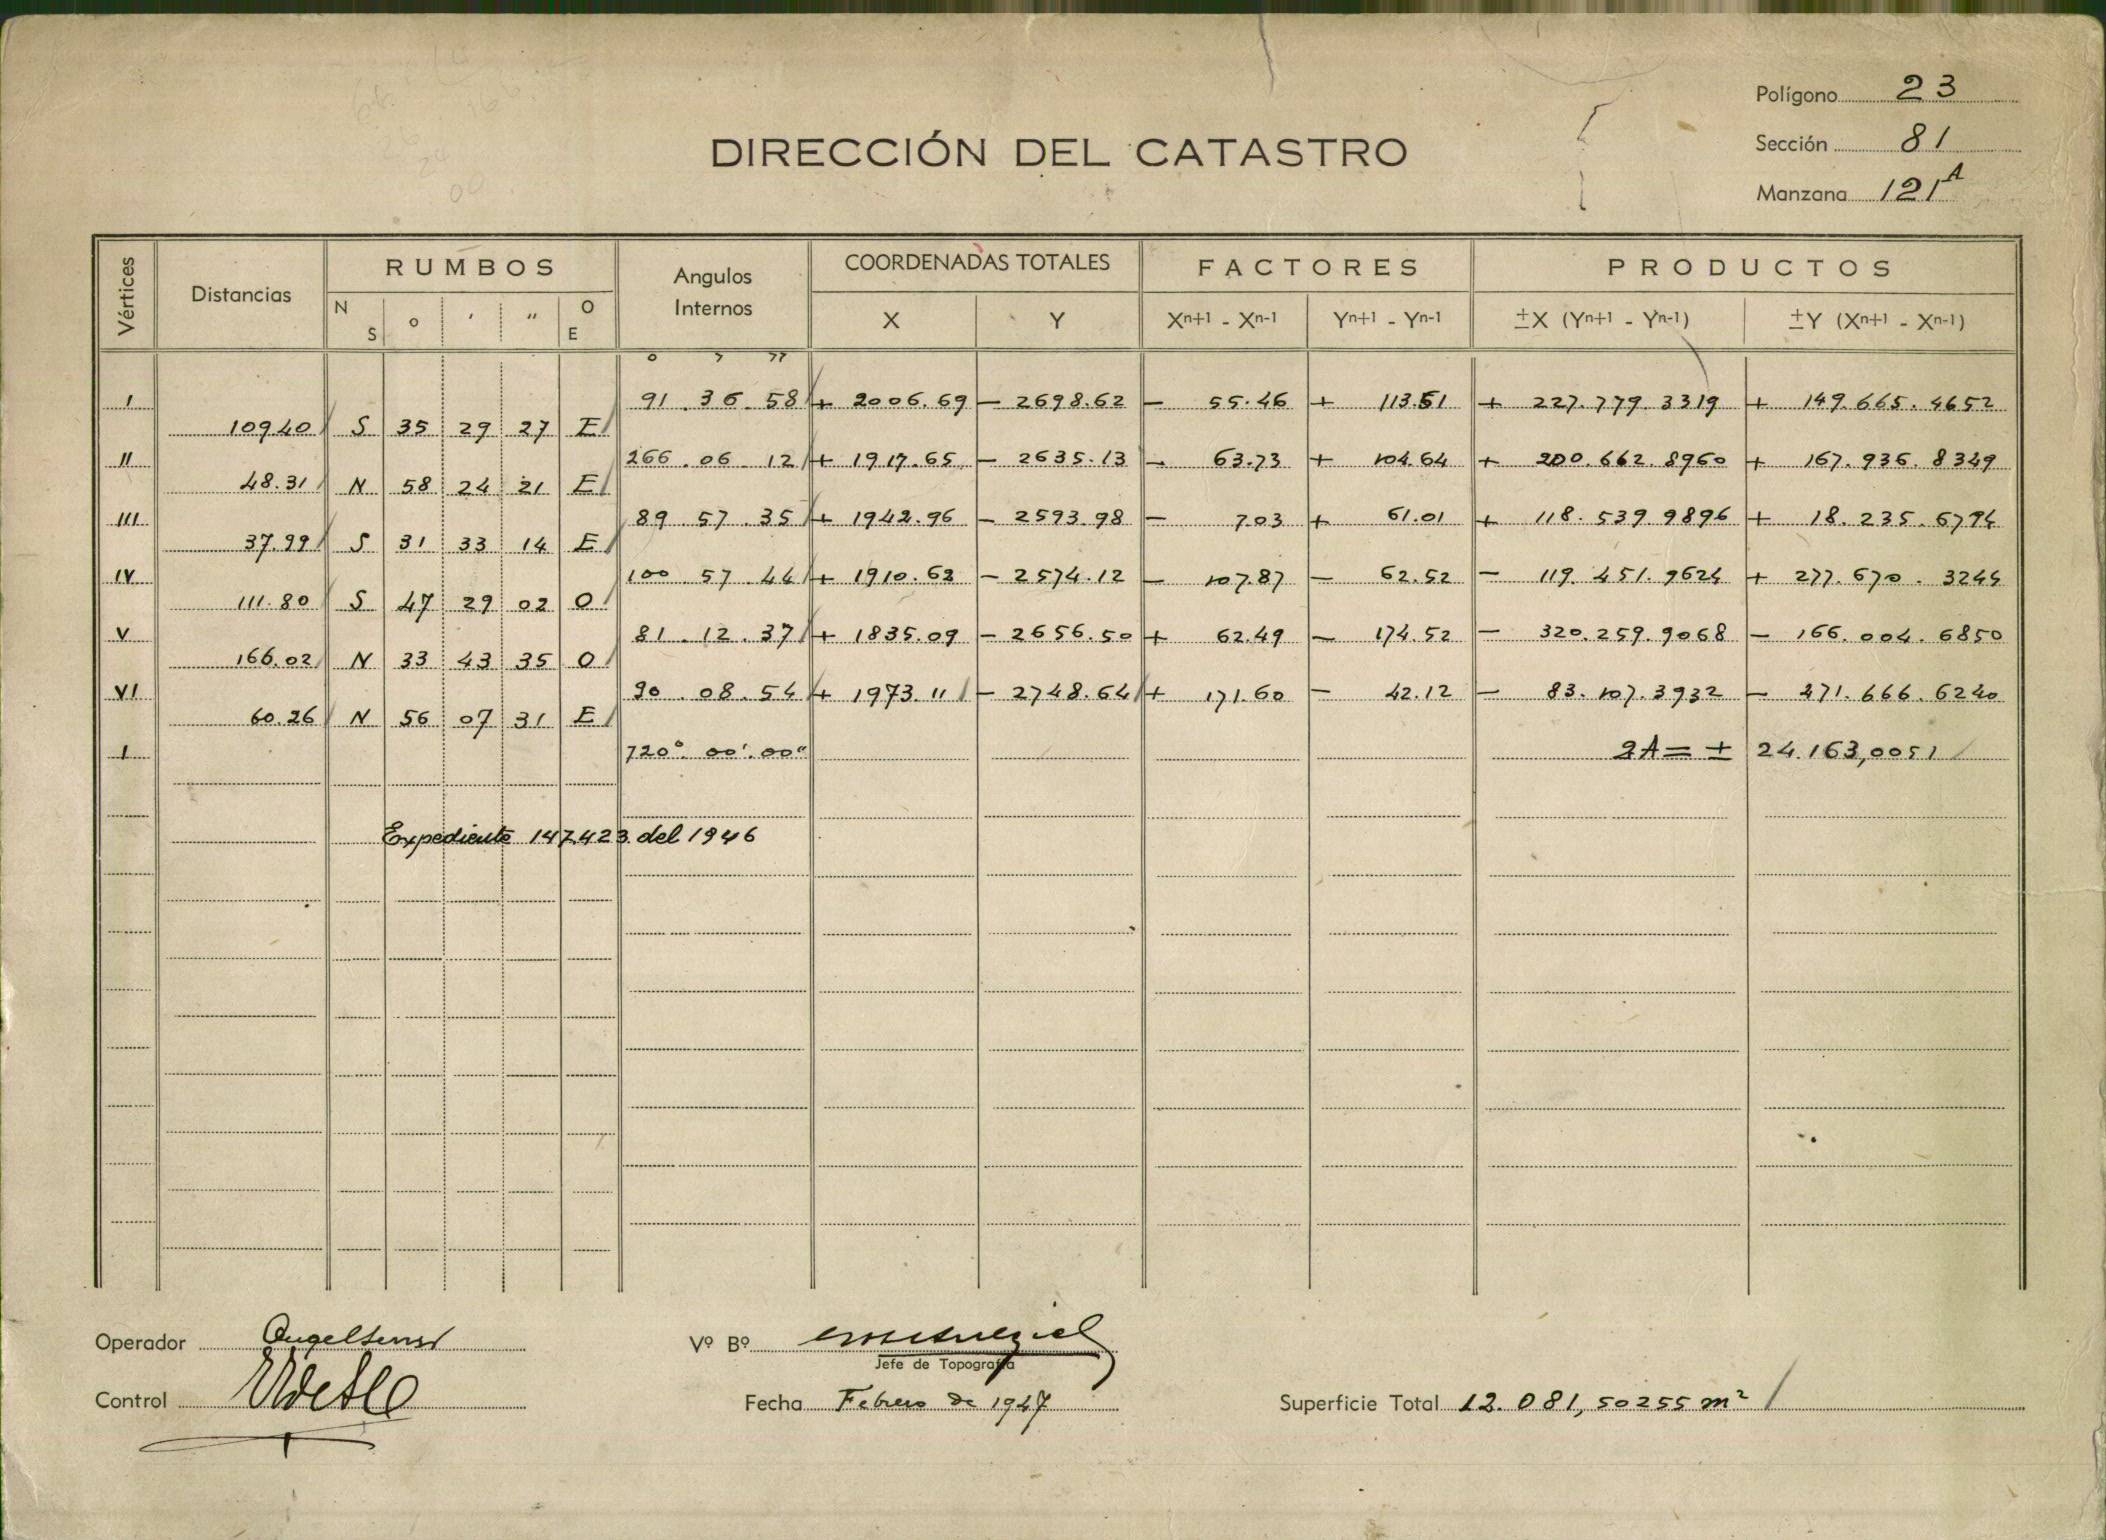 Polígono 23
Sección 81
Manzana 121A
DIRECCIÓN DEL CATASTRO
Vértices Distancias RUMBOS Angulos Internos COORDENADAS TOTALES FACTORES PRODUCTOS
N S ° ' " O E X Y Xn+1 - Xn-1 Yn+1 - Yn-1 ±X (Yn+1 - Yn-1) ±Y (Xn+1 - Xn-1)
° ' "
I 91 . 36 . 58 + 2006.69 - 2698.62 - 55.46 + 113.51 + 227.779.3819 + 149.665.4652
109.40 S 35 29 27 E
II 266 . 06 . 12 + 1917.65 - 2635.13 - 63.73 + 104.64 + 200.662.8960 + 167.936.8349
48.31 N 58 24 21 E
III 89 . 57 . 35 + 1942.96 - 2593.98 - 7.03 + 61.01 + 118.539.9896 + 18.235.6794
37.99 S 31 33 14 E
IV 100 57 . 44 + 1910.62 - 2574.12 - 107.87 - 62.52 - 119.451.9624 + 277.670.3244
111.80 S 47 29 02 O
V 81 . 12 . 37 + 1835.09 - 2656.50 + 62.49 - 174.52 - 320.259.9068 - 166.004.6850
166.02 N 33 43 35 O
VI 90 . 08 . 54 + 1973.11 - 2748.64 + 171.60 - 42.12 - 83.107.3932 - 471.666.6240
60.26 N 56 07 31 E
I 720°. 00'. 00" 2A = ± 24.163,0051
Expediente 147423 del 1946
Operador
Vº Bº
Jefe de Topografía
Control
Fecha Febrero de 1947
Superficie Total 12.081,50255 m²